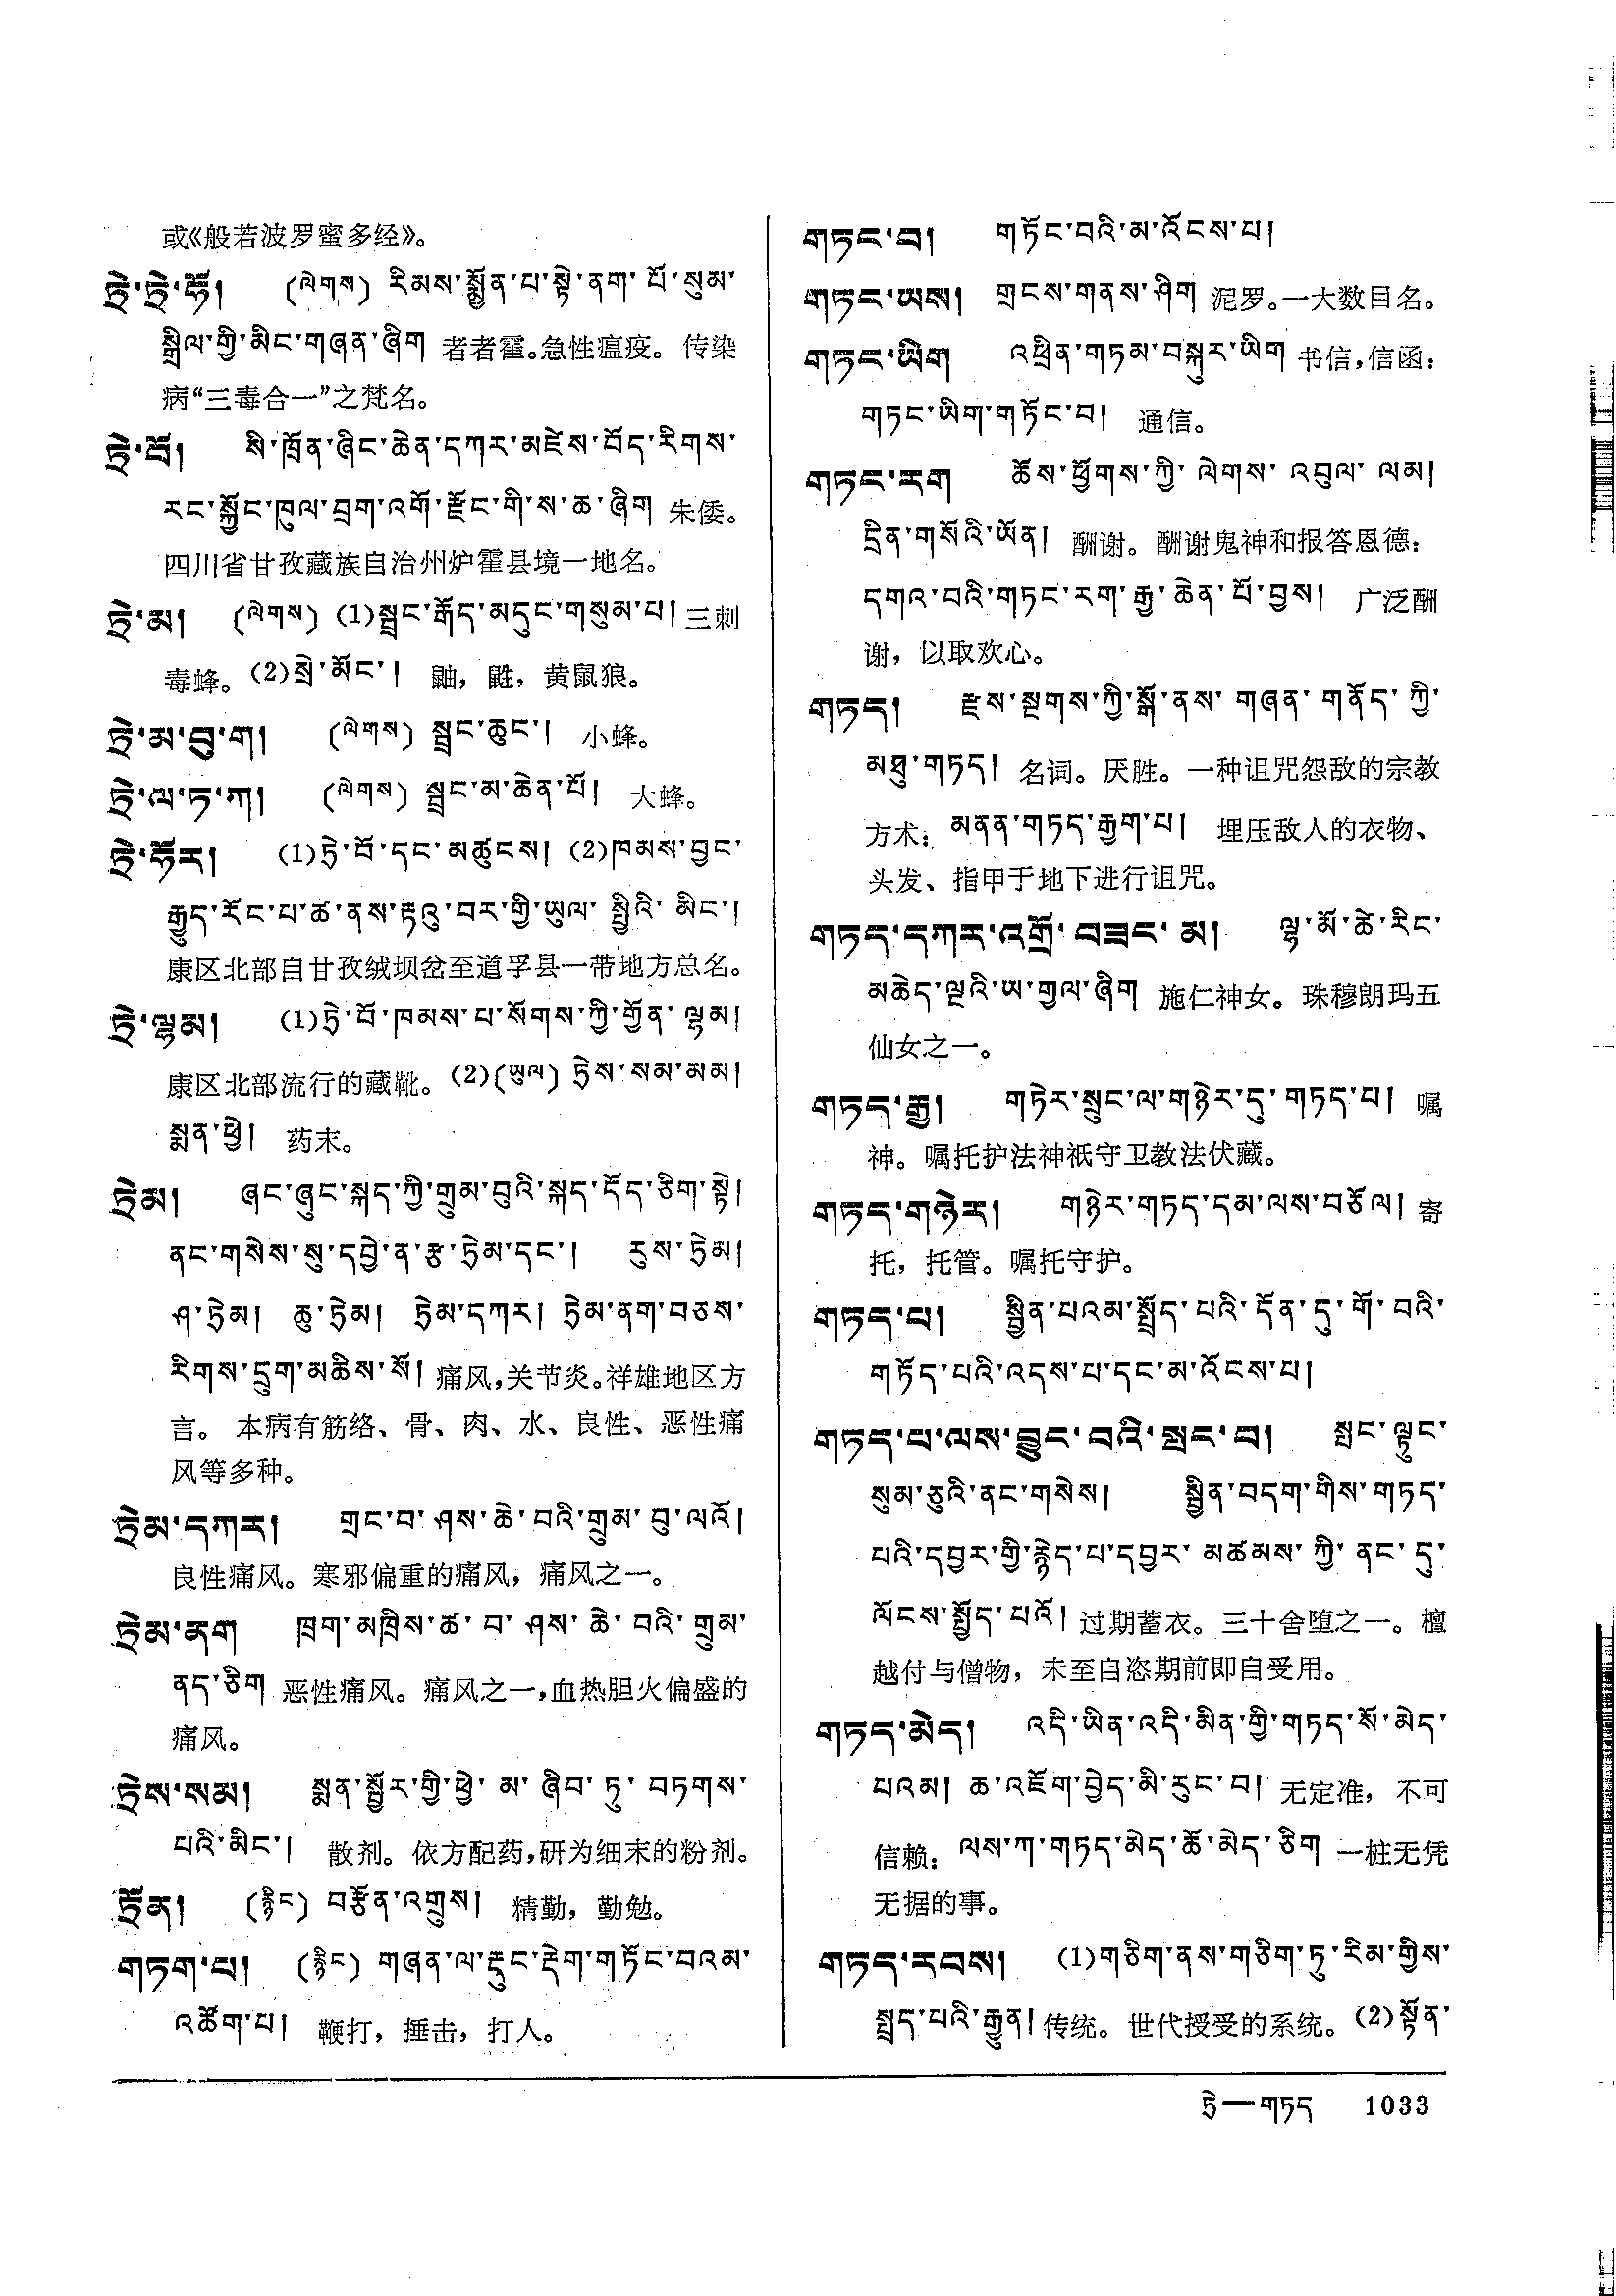 或《般若波罗蜜多经》。
ཏྲེ་ཏྲེ་ཧོ། (ལེགས) རིམས་སྨྱོན་པ་སྟེ་ནག་པོ་སུམ་
སྒྲིལ་གྱི་མིང་གཞན་ཞིག 者者霍。急性瘟疫。传染
病“三毒合一”之梵名。
ཏྲེ་བོ། སི་ཁྲོན་ཞིང་ཆེན་དཀར་མཛེས་བོད་རིགས་
རང་སྐྱོང་ཁུལ་བྲག་འགོ་རྫོང་གི་ས་ཆ་ཞིག 朱倭。
四川省甘孜藏族自治州炉霍县境一地名。
ཏྲེ་མ། (ལེགས) (1)སྦྲང་རྒོད་མདུང་གསུམ་པ། 三刺
毒蜂。(2)སྲེ་མོང་། 鼬，鼪，黄鼠狼。
ཏྲེ་མ་བུ་ག། (ལེགས) སྦྲང་ཆུང་། 小蜂。
ཏྲེ་ལ་ཏ་ཀ། (ལེགས) སྦྲང་མ་ཆེན་པོ། 大蜂。
ཏྲེ་ཧོར། (1)ཏྲེ་བོ་དང་མཚུངས། (2)ཁམས་བྱང་
རྒྱུད་རོང་པ་ཚ་ནས་རྟའུ་བར་གྱི་ཡུལ་སྤྱིའི་མིང་།
康区北部自甘孜绒坝岔至道孚县一带地方总名。
ཏྲེ་ལྷམ། (1)ཏྲེ་བོ་ཁམས་པ་སོགས་ཀྱི་གྱོན་ལྷམ།
康区北部流行的藏靴。(2)(ཡུལ) ཏྲེས་སམ་མམ།
སྨན་ཕྱེ། 药末。
ཏྲེམ། ཞང་ཞུང་སྐད་ཀྱི་གྲུམ་བུའི་སྐད་དོད་ཅིག་སྟེ།
ནང་གསེས་སུ་དབྱེ་ན་རྩ་ཏྲེམ་དང་། རུས་ཏྲེམ།
ཤ་ཏྲེམ། ཆུ་ཏྲེམ། ཏྲེམ་དཀར། ཏྲེམ་ནག་བཅས་
རིགས་དྲུག་མཆིས་སོ། 痛风,关节炎。祥雄地区方
言。 本病有筋络、骨、肉、水、良性、恶性痛
风等多种。
ཏྲེམ་དཀར། གྲང་བ་ཤས་ཆེ་བའི་གྲུམ་བུ་ལའོ།
良性痛风。寒邪偏重的痛风，痛风之一。
ཏྲེམ་ནག ཁྲག་མཁྲིས་ཚ་བ་ཤས་ཆེ་བའི་གྲུམ་
ནད་ཅིག 恶性痛风。痛风之一,血热胆火偏盛的
痛风。
ཏྲེས་སམ། སྨན་སྦྱོར་གྱི་ཕྱེ་མ་ཞིབ་ཏུ་བཏགས་
པའི་མིང་། 散剂。依方配药,研为细末的粉剂。
ཏྲོན། (རྙིང) བརྩོན་འགྲུས། 精勤，勤勉。
གཏག་པ། (རྙིང) གཞན་ལ་རྡུང་རྡེག་གཏོང་བའམ་
འཚོག་པ། 鞭打，捶击，打人。
གཏང་བ། གཏོང་བའི་མ་འོངས་པ།
གཏང་ཡས། གྲངས་གནས་ཤིག 泥罗。一大数目名。
གཏང་ཡིག འཕྲིན་གཏམ་བསྐུར་ཡིག 书信,信函：
གཏང་ཡིག་གཏོང་བ། 通信。
གཏང་རག ཆོས་ཕྱོགས་ཀྱི་ལེགས་འབུལ་ལམ།
དྲིན་གསོའི་ཡོན། 酬谢。酬谢鬼神和报答恩德：
དགའ་བའི་གཏང་རག་རྒྱ་ཆེན་པོ་བྱས། 广泛酬
谢，以取欢心。
གཏད། རྫས་སྔགས་ཀྱི་སྒོ་ནས་གཞན་གནོད་ཀྱི་
མཐུ་གཏད། 名词。厌胜。一种诅咒怨敌的宗教
方术：མནན་གཏད་རྒྱག་པ། 埋压敌人的衣物、
头发、指甲于地下进行诅咒。
གཏད་དཀར་འགྲོ་བཟང་མ། ལྷ་མོ་ཚེ་རིང་
མཆེད་ལྔའི་ཡ་གྱལ་ཞིག 施仁神女。珠穆朗玛五
仙女之一。
གཏད་རྒྱ། གཏེར་སྲུང་ལ་གཉེར་དུ་གཏད་པ། 嘱
神。嘱托护法神祇守卫教法伏藏。
གཏད་གཉེར། གཉེར་གཏད་དམ་ལས་བཅོལ། 寄
托，托管。嘱托守护。
གཏད་པ། སྦྱིན་པའམ་སྤྲོད་པའི་དོན་དུ་གོ་བའི་
གཏོད་པའི་འདས་པ་དང་མ་འོངས་པ།
གཏད་པ་ལས་བྱུང་བའི་སྤང་བ། སྤང་ལྟུང་
སུམ་ཅུའི་ནང་གསེས། སྦྱིན་བདག་གིས་གཏད་
པའི་དབྱར་གྱི་རྙེད་པ་དབྱར་མཚམས་ཀྱི་ནང་དུ་
ལོངས་སྤྱོད་པའོ། 过期蓄衣。三十舍堕之一。檀
越付与僧物，未至自恣期前即自受用。
གཏད་མེད། འདི་ཡིན་འདི་མིན་གྱི་གཏད་སོ་མེད་
པའམ། ཆ་འཇོག་བྱེད་མི་རུང་བ། 无定准，不可
信赖：ལས་ཀ་གཏད་མེད་ཚོ་མེད་ཅིག 一桩无凭
无据的事。
གཏད་རབས། (1)གཅིག་ནས་གཅིག་ཏུ་རིམ་གྱིས་
སྤྲད་པའི་རྒྱུན། 传统。世代授受的系统。(2)སྟོན་
ཏྲེ—གཏད 1033